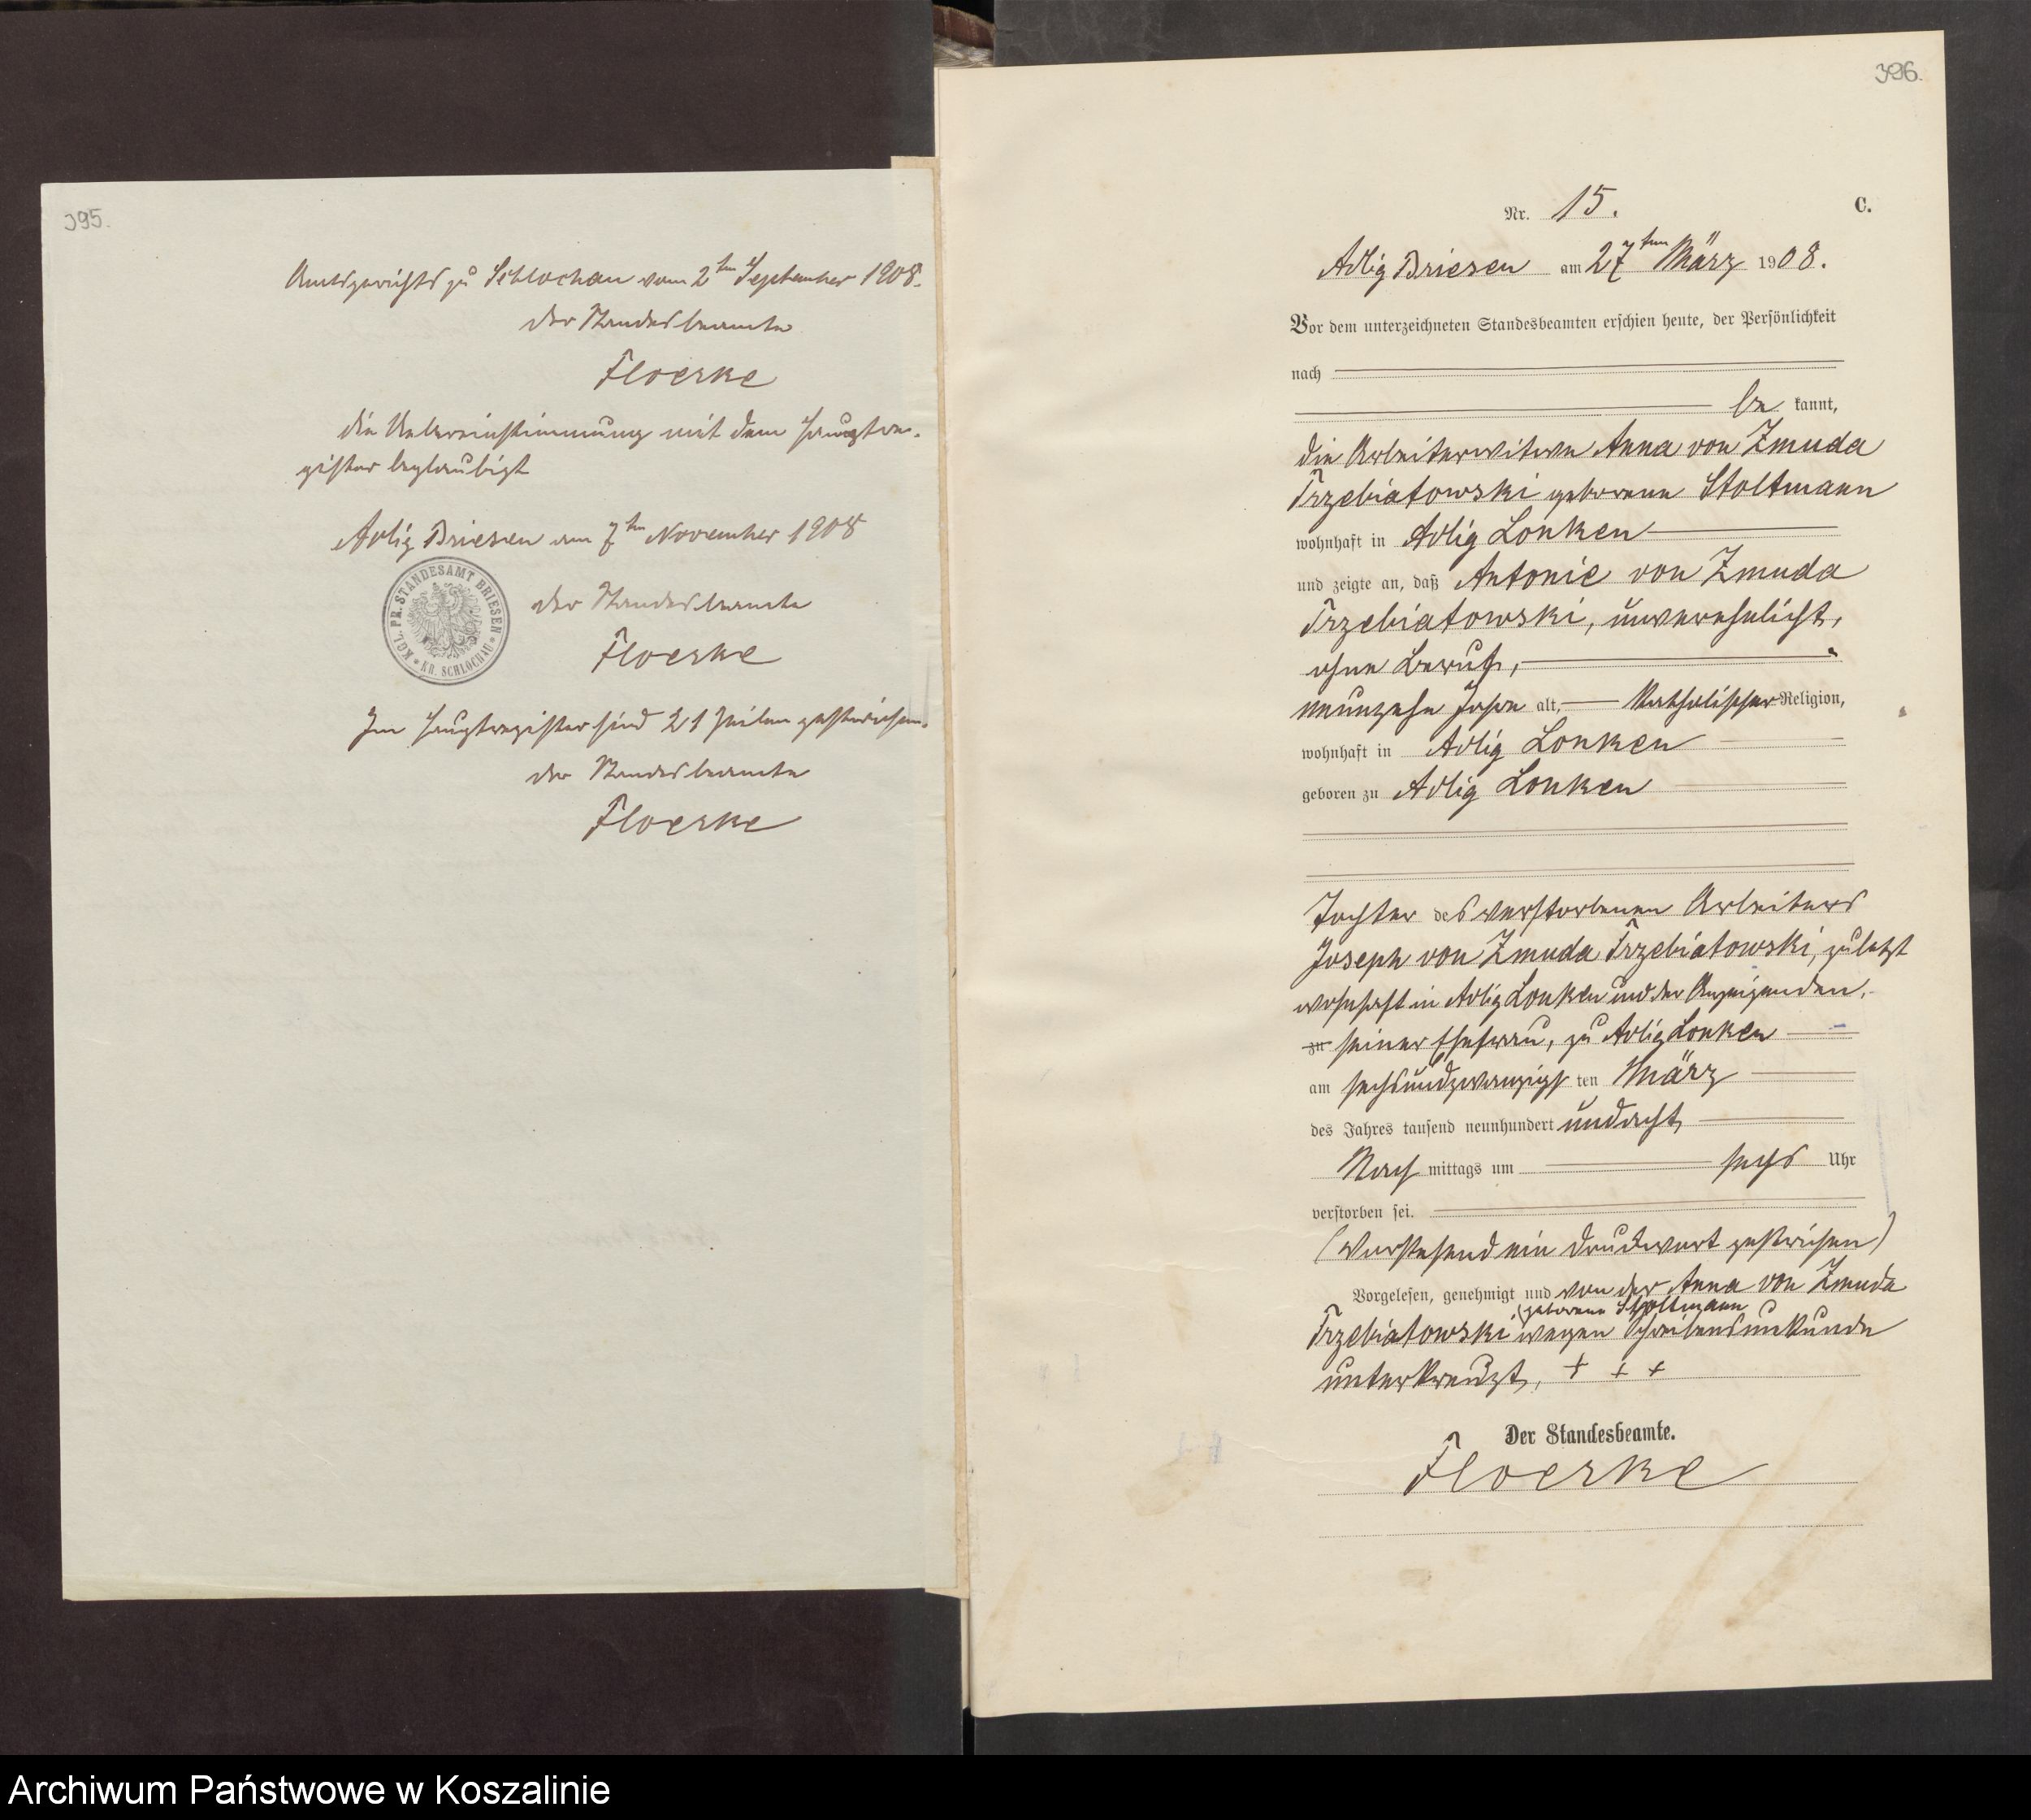 395.
Amtsgerichts zu Schlochau vom 2ten September 1908.
der Standesbeamte
Floerke
die Uebereinstimmung mit dem Hauptre-
gister beglaubigt
Adlig Briesen am 7ten November 1908
KGL. PR. STANDESAMT BRIESEN * KR. SCHLOCHAU *
der Standesbeamte
Floerke
Im Hauptregister sind 21 Zeilen gestrichen.
der Standesbeamte
Floerke
396.
Nr. 15. C.
Adlig Briesen am 27ten März 1908.
Vor dem unterzeichneten Standesbeamten erschien heute, der Persönlichkeit
nach
be kannt,
die Arbeiterwitwe Anna von Zmuda
Trzebiatowski geborene Stoltmann
wohnhaft in Adlig Lonken
und zeigte an, daß Antonie von Zmuda
Trzebiatowski, unverehelicht,
ohne Beruf,
neunzehn Jahre alt, katholischer Religion,
wohnhaft in Adlig Lonken
geboren zu Adlig Lonken
Tochter des verstorbenen Arbeiters
Joseph von Zmuda Trzebiatowski, zuletzt
wohnhaft in Adlig Lonken und der Anzeigenden,
zu seiner Ehefrau, zu Adlig Lonken
am sechsundzwanzigsten März
des Jahres tausend neunhundert undacht
Nach mittags um sechs Uhr
verstorben sei.
(Vorstehend ein Druckwort gestrichen)
Vorgelesen, genehmigt und von der Anna von Zmuda
(geborene Stoltmann
Trzebiatowski wegen Schreibensunkunde
unterkreuzt, + + +
Der Standesbeamte.
Floerke
Archiwum Państwowe w Koszalinie